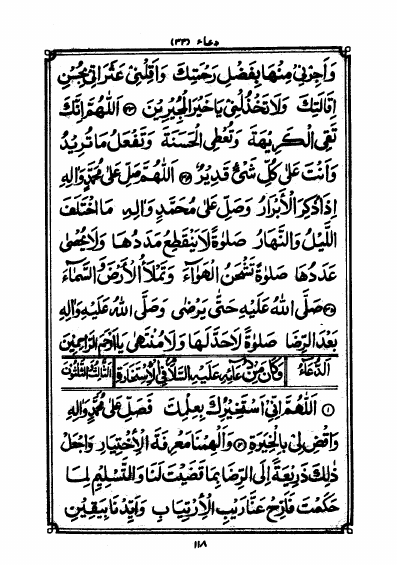 دعاء (٣٣)
وَاَجِرْنِیْ مِنْهَا بِفَضْلِ رَحْمَتِكَ وَاَقِلْنِیْ عَثَرَاتِیْ بِحُسْنِ
اِقَالَتِكَ وَلَا تَخْذُلْنِیْ یَا خَیْرَ الْمُجِیْرِیْنَ ۞ اَللّٰهُمَّ اِنَّكَ
تَقِی الْكَرِیْهَةَ وَتُعْطِی الْحَسَنَةَ وَتَفْعَلُ مَا تُرِیْدُ
وَاَنْتَ عَلٰی كُلِّ شَیْءٍ قَدِیْرٌ ۞ اَللّٰهُمَّ صَلِّ عَلٰی مُحَمَّدٍ وَاٰلِهٖ
اِذَا ذُكِرَ الْاَبْرَارُ وَصَلِّ عَلٰی مُحَمَّدٍ وَاٰلِهٖ مَا اخْتَلَفَ
اللَّیْلُ وَالنَّهَارُ صَلٰوةً لَا یَنْقَطِعُ مَدَدُهَا وَلَا یُحْصٰی
عَدَدُهَا صَلٰوةً تَشْحَنُ الْهَوَآءَ وَتَمْلَاُ الْاَرْضَ وَالسَّمَآءَ
۞ صَلَّی اللّٰهُ عَلَیْهِ حَتّٰی یَرْضٰی وَصَلَّی اللّٰهُ عَلَیْهِ وَاٰلِهٖ
بَعْدَ الرِّضَا صَلٰوةً لَا حَدَّ لَهَا وَلَا مُنْتَهٰی یَا اَرْحَمَ الرَّاحِمِیْنَ
اَلدُّعَآءُ وَكَانَ مِنْ دُعَآئِهٖ عَلَیْهِ السَّلَامُ فِی الْاِسْتِخَارَةِ الثَّالِثُ وَالثَّلٰثُوْنَ
۱ اَللّٰهُمَّ اِنِّیْ اَسْتَخِیْرُكَ بِعِلْمِكَ فَصَلِّ عَلٰی مُحَمَّدٍ وَاٰلِهٖ
وَاقْضِ لِیْ بِالْخِیَرَةِ ۲ وَاَلْهِمْنَا مَعْرِفَةَ الْاِخْتِیَارِ وَاجْعَلْ
ذٰلِكَ ذَرِیْعَةً اِلَی الرِّضَا بِمَا قَضَیْتَ لَنَا وَالتَّسْلِیْمِ لِمَا
حَكَمْتَ فَاَزِحْ عَنَّا رَیْبَ الْاِرْتِیَابِ وَاَیِّدْنَا بِیَقِیْنِ
۱۱۸